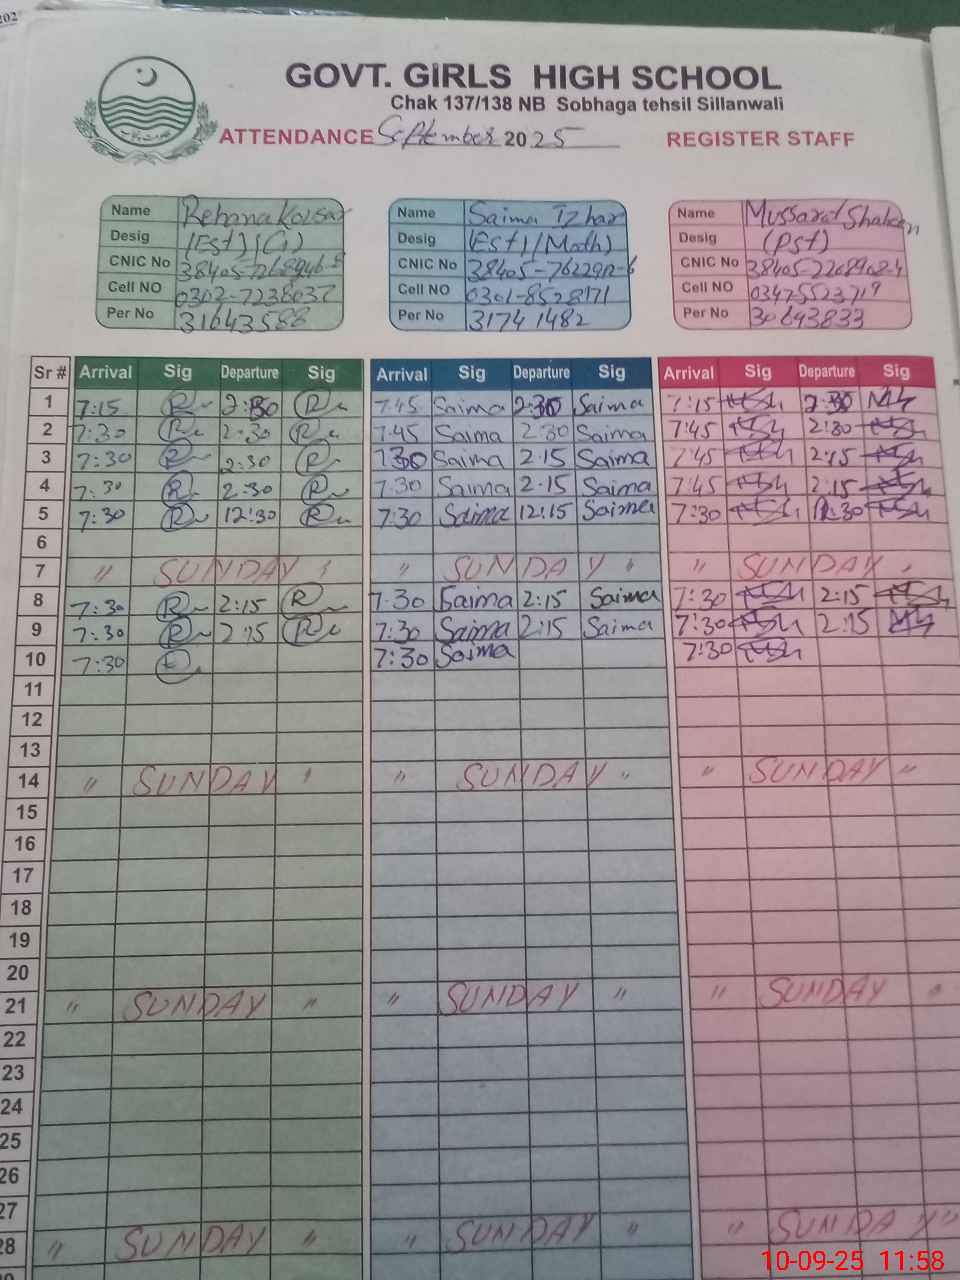 202
GOVT. GIRLS HIGH SCHOOL
Chak 137/138 NB Sobhaga tehsil Sillanwali
ATTENDANCE September 2025 REGISTER STAFF
Name Rehana Kousar Name Saima Izhar Name Mussarat Shaheen
Desig (Est) (G) Desig (Est) (Math) Desig (Pst)
CNIC No CNIC No CNIC No
Cell NO 0302-7238037 Cell NO 0301-8528171 Cell NO 0347-5523719
Per No 31643588 Per No 31741482 Per No 30693833
Sr # Arrival Sig Departure Sig Arrival Sig Departure Sig Arrival Sig Departure Sig
1 7:15 R 2:30 R 7:45 Saima 2:30 Saima 7:15 2:30
2 7:30 R 2:30 R 7:45 Saima 2:30 Saima 7:45 2:30
3 7:30 R 2:30 R 7:30 Saima 2:15 Saima 7:45 2:15
4 7:30 R 2:30 R 7:30 Saima 2:15 Saima 7:45 2:15
5 7:30 R 12:30 R 7:30 Saima 12:15 Saima 7:30 12:30
6
7 " SUNDAY " " SUNDAY " " SUNDAY "
8 7:30 R 2:15 R 7:30 Saima 2:15 Saima 7:30 2:15
9 7:30 R 2:15 R 7:30 Saima 2:15 Saima 7:30 2:15
10 7:30 R 7:30 Saima 7:30
11
12
13
14 " SUNDAY " " SUNDAY " " SUNDAY "
15
16
17
18
19
20
21 " SUNDAY " " SUNDAY " " SUNDAY "
22
23
24
25
26
27
28 " SUNDAY " " SUNDAY " " SUNDAY "
10-09-25 11:58